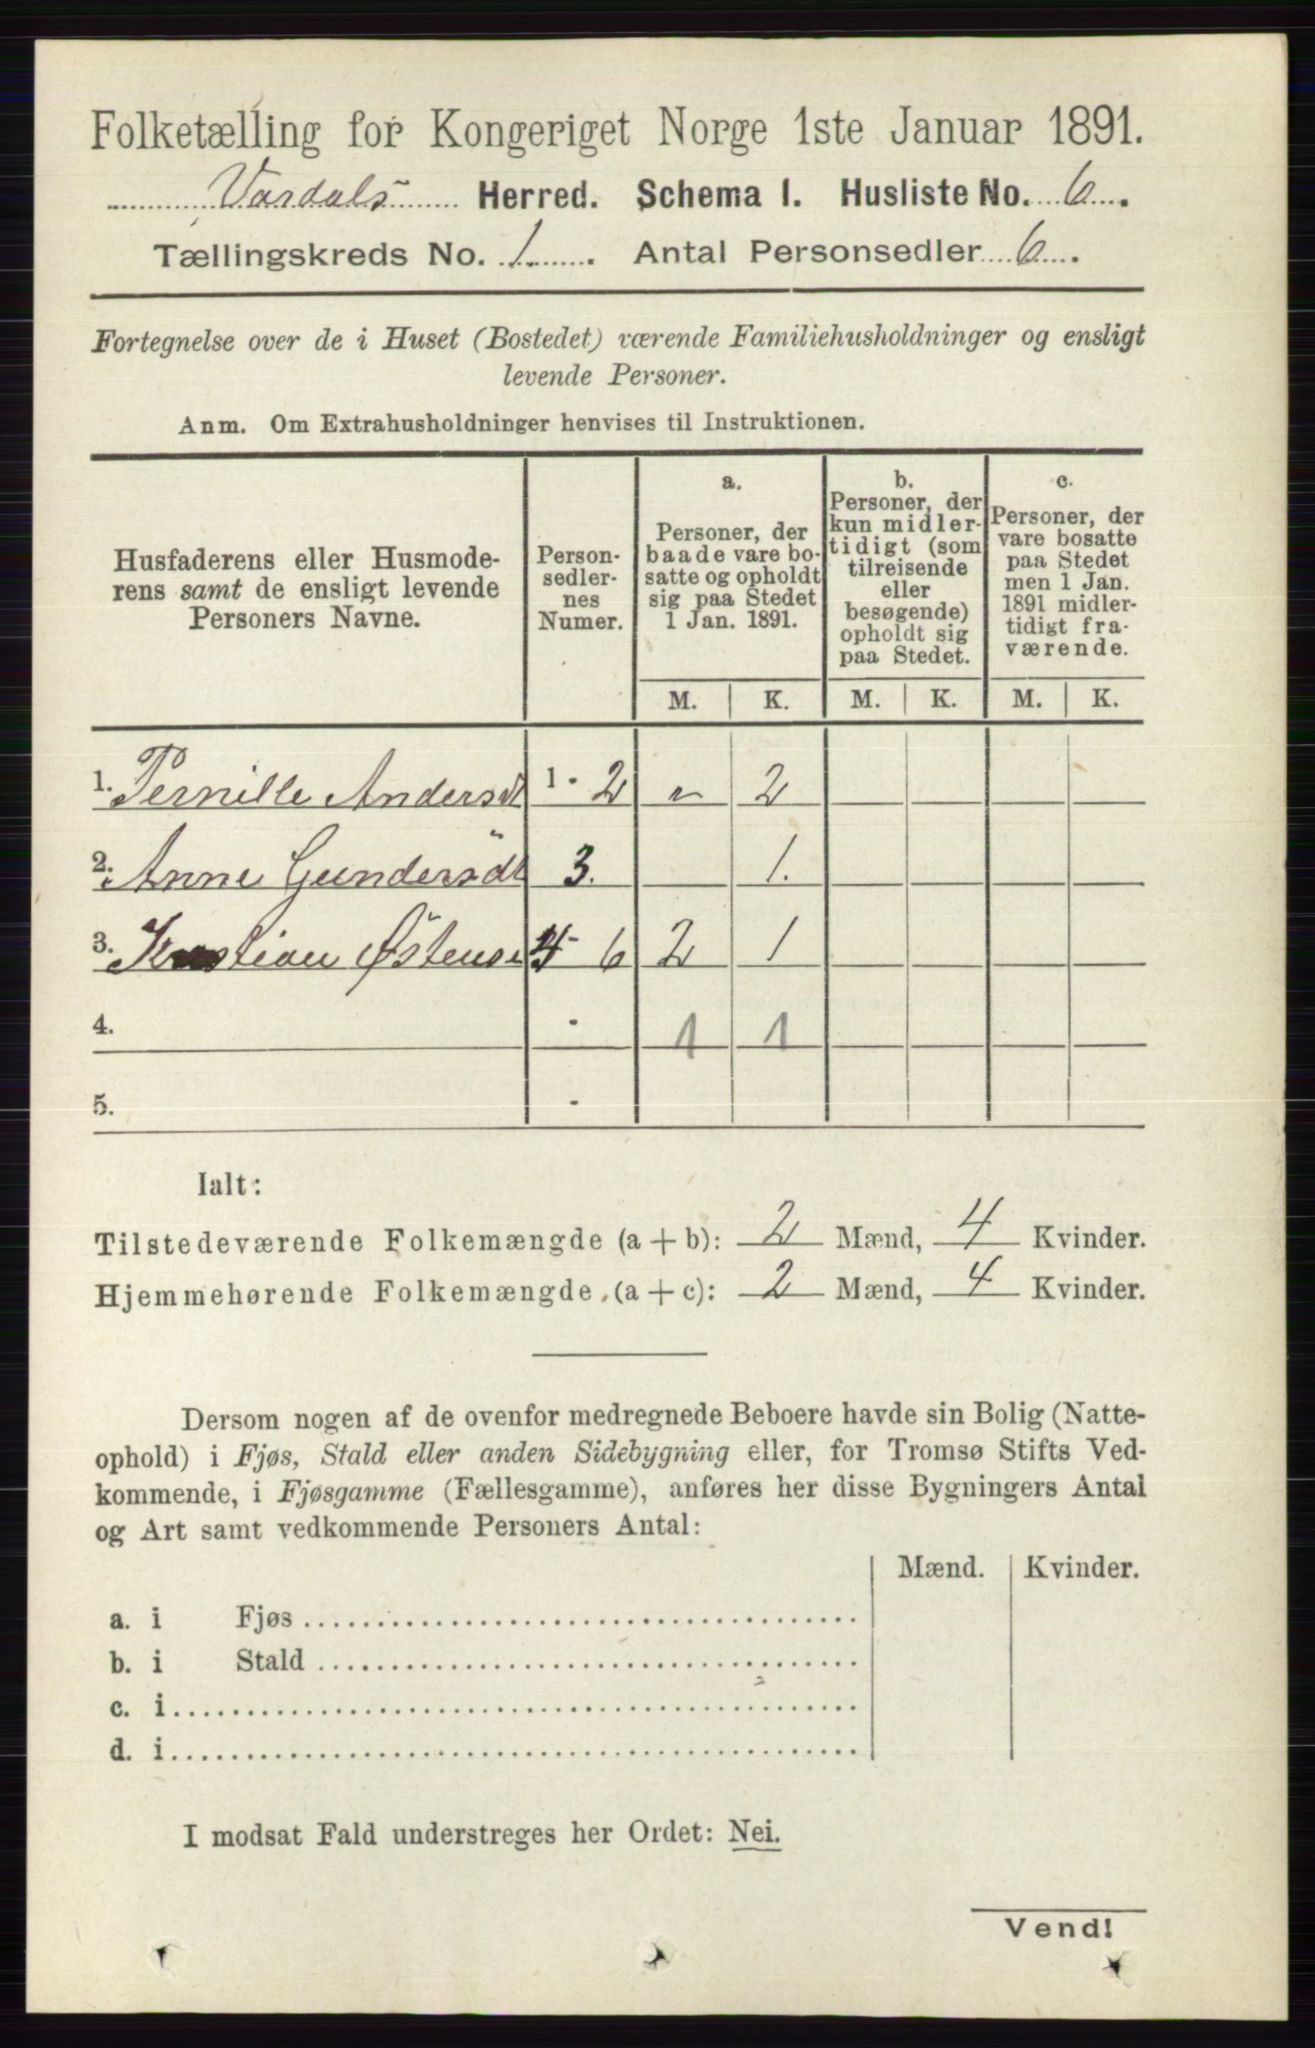 Folketælling for Kongeriget Norge 1ste Januar 1891.
Vardals Herred. Schema I. Husliste No. 6.
Tællingskreds No. 1. Antal Personsedler 6.
Fortegnelse over de i Huset (Bostedet) værende Familiehusholdninger og ensligt
levende Personer.
Anm. Om Extrahusholdninger henvises til Instruktionen.
Husfaderens eller Husmode-
rens samt de ensligt levende
Personers Navne.
Person-
sedler-
nes
Numer.
a.
Personer, der
baade vare bo-
satte og opholdt
sig paa Stedet
1 Jan. 1891.
b.
Personer, der
kun midler-
tidigt (som
tilreisende
eller
besøgende)
opholdt sig
paa Stedet.
c.
Personer, der
vare bosatte
paa Stedet
men 1 Jan.
1891 midler-
tidigt fra-
værende.
M. K. M. K. M. K.
1. Pernille Andersdt 1 - 2 " 2
2. Anne Gundersdt 3. 1.
3. Kristian Østense 4 - 6 2 1
4. - 1 1
5. -
Ialt:
Tilstedeværende Folkemængde (a + b): 2 Mænd, 4 Kvinder.
Hjemmehørende Folkemængde (a + c): 2 Mænd, 4 Kvinder.
Dersom nogen af de ovenfor medregnede Beboere havde sin Bolig (Natte-
ophold) i Fjøs, Stald eller anden Sidebygning eller, for Tromsø Stifts Ved-
kommende, i Fjøsgamme (Fællesgamme), anføres her disse Bygningers Antal
og Art samt vedkommende Personers Antal:
Mænd. Kvinder.
a. i Fjøs
b. i Stald
c. i
d. i
I modsat Fald understreges her Ordet: Nei.
Vend!